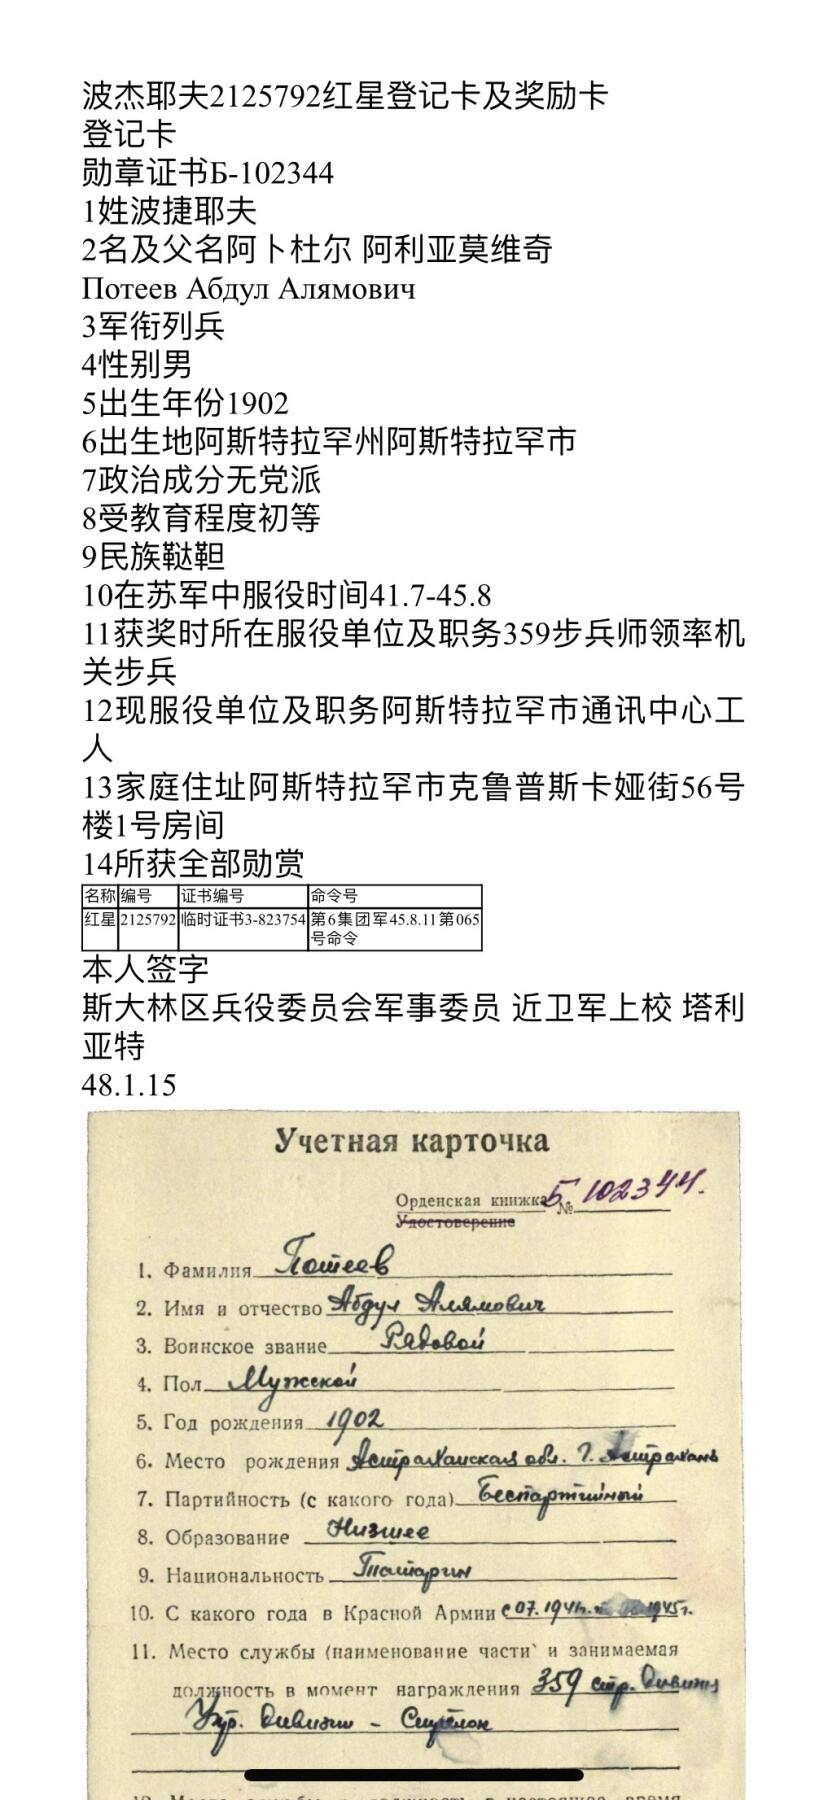 波杰耶夫2125792红星登记卡及奖励卡
登记卡
勋章证书Б-102344
1姓波捷耶夫
2名及父名阿卜杜尔 阿利亚莫维奇
Потеев Абдул Алямович
3军衔列兵
4性别男
5出生年份1902
6出生地阿斯特拉罕州阿斯特拉罕市
7政治成分无党派
8受教育程度初等
9民族鞑靼
10在苏军中服役时间41.7-45.8
11获奖时所在服役单位及职务359步兵师领率机
关步兵
12现服役单位及职务阿斯特拉罕市通讯中心工
人
13家庭住址阿斯特拉罕市克鲁普斯卡娅街56号
楼1号房间
14所获全部勋赏
名称 编号 证书编号 命令号
红星 2125792 临时证书3-823754 第6集团军45.8.11第065
号命令
本人签字
斯大林区兵役委员会军事委员 近卫军上校 塔利
亚特
48.1.15
Учетная карточка
Орденская книжка Б № 102344.
Удостоверение
1. Фамилия Потеев
2. Имя и отчество Абдул Алямович
3. Воинское звание Рядовой
4. Пол Мужской
5. Год рождения 1902
6. Место рождения Астраханская обл. г. Астрахань
7. Партийность (с какого года) Беспартийный
8. Образование Низшее
9. Национальность Татарин
10. С какого года в Красной Армии с 07.1941г. 1945г.
11. Место службы (наименование части и занимаемая
должность в момент награждения 359 стр. дивизия
Упр. дивизии - Стрелок